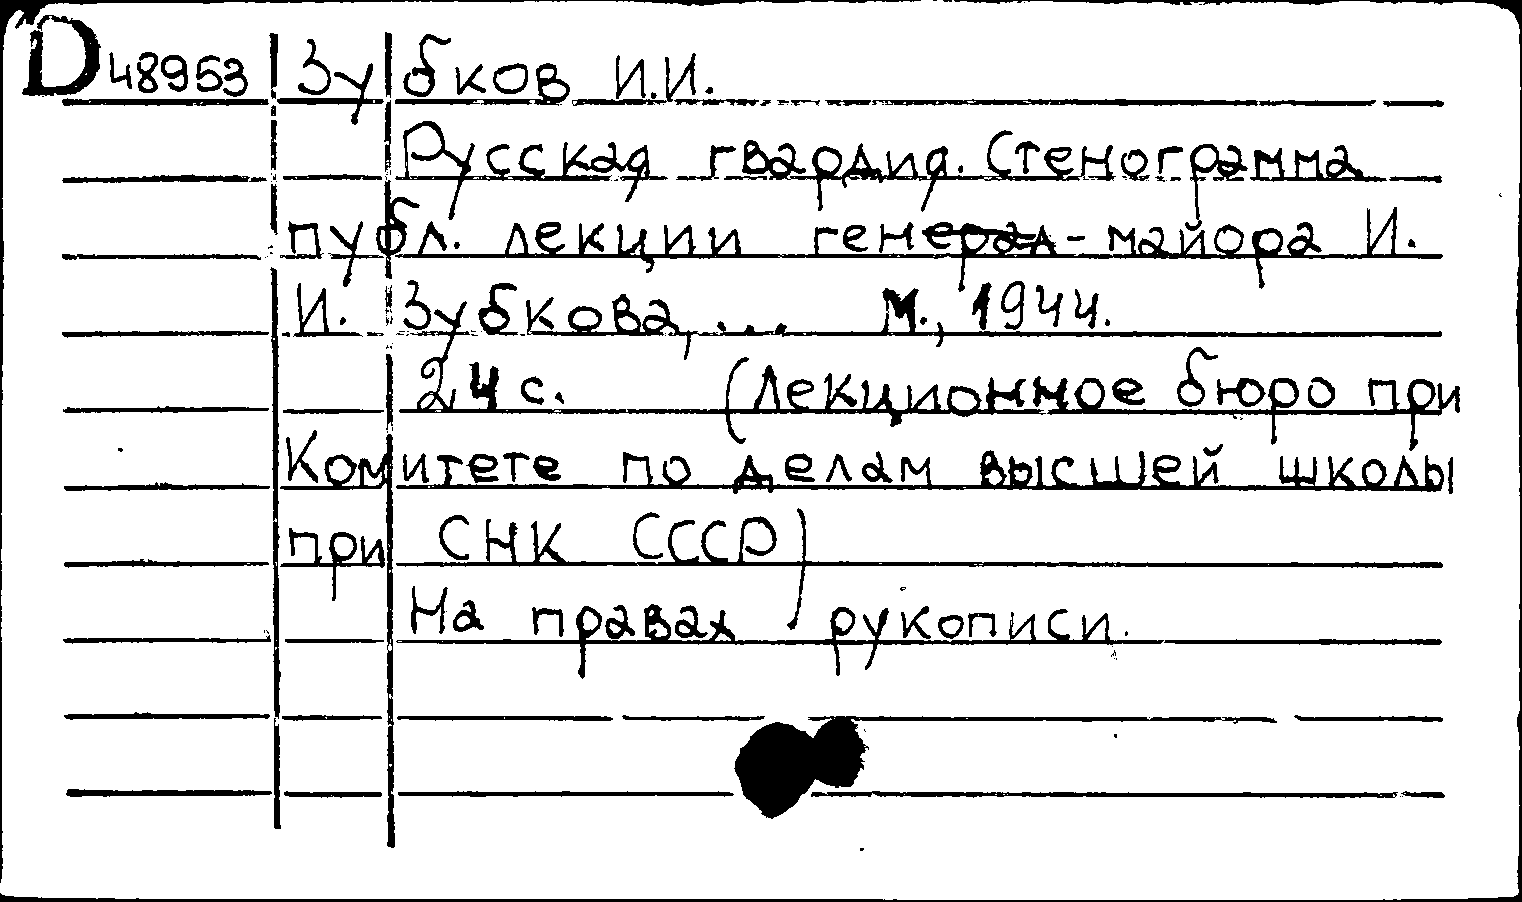 D48953 Зубков И.И.
Русская гвардия. Стенограмма
публ. лекции генерал-майора И.
И. Зубкова, ... М., 1944.
24 с. (Лекционное бюро при
Комитете по делам высшей школы
при СНК СССР)
На правах рукописи.